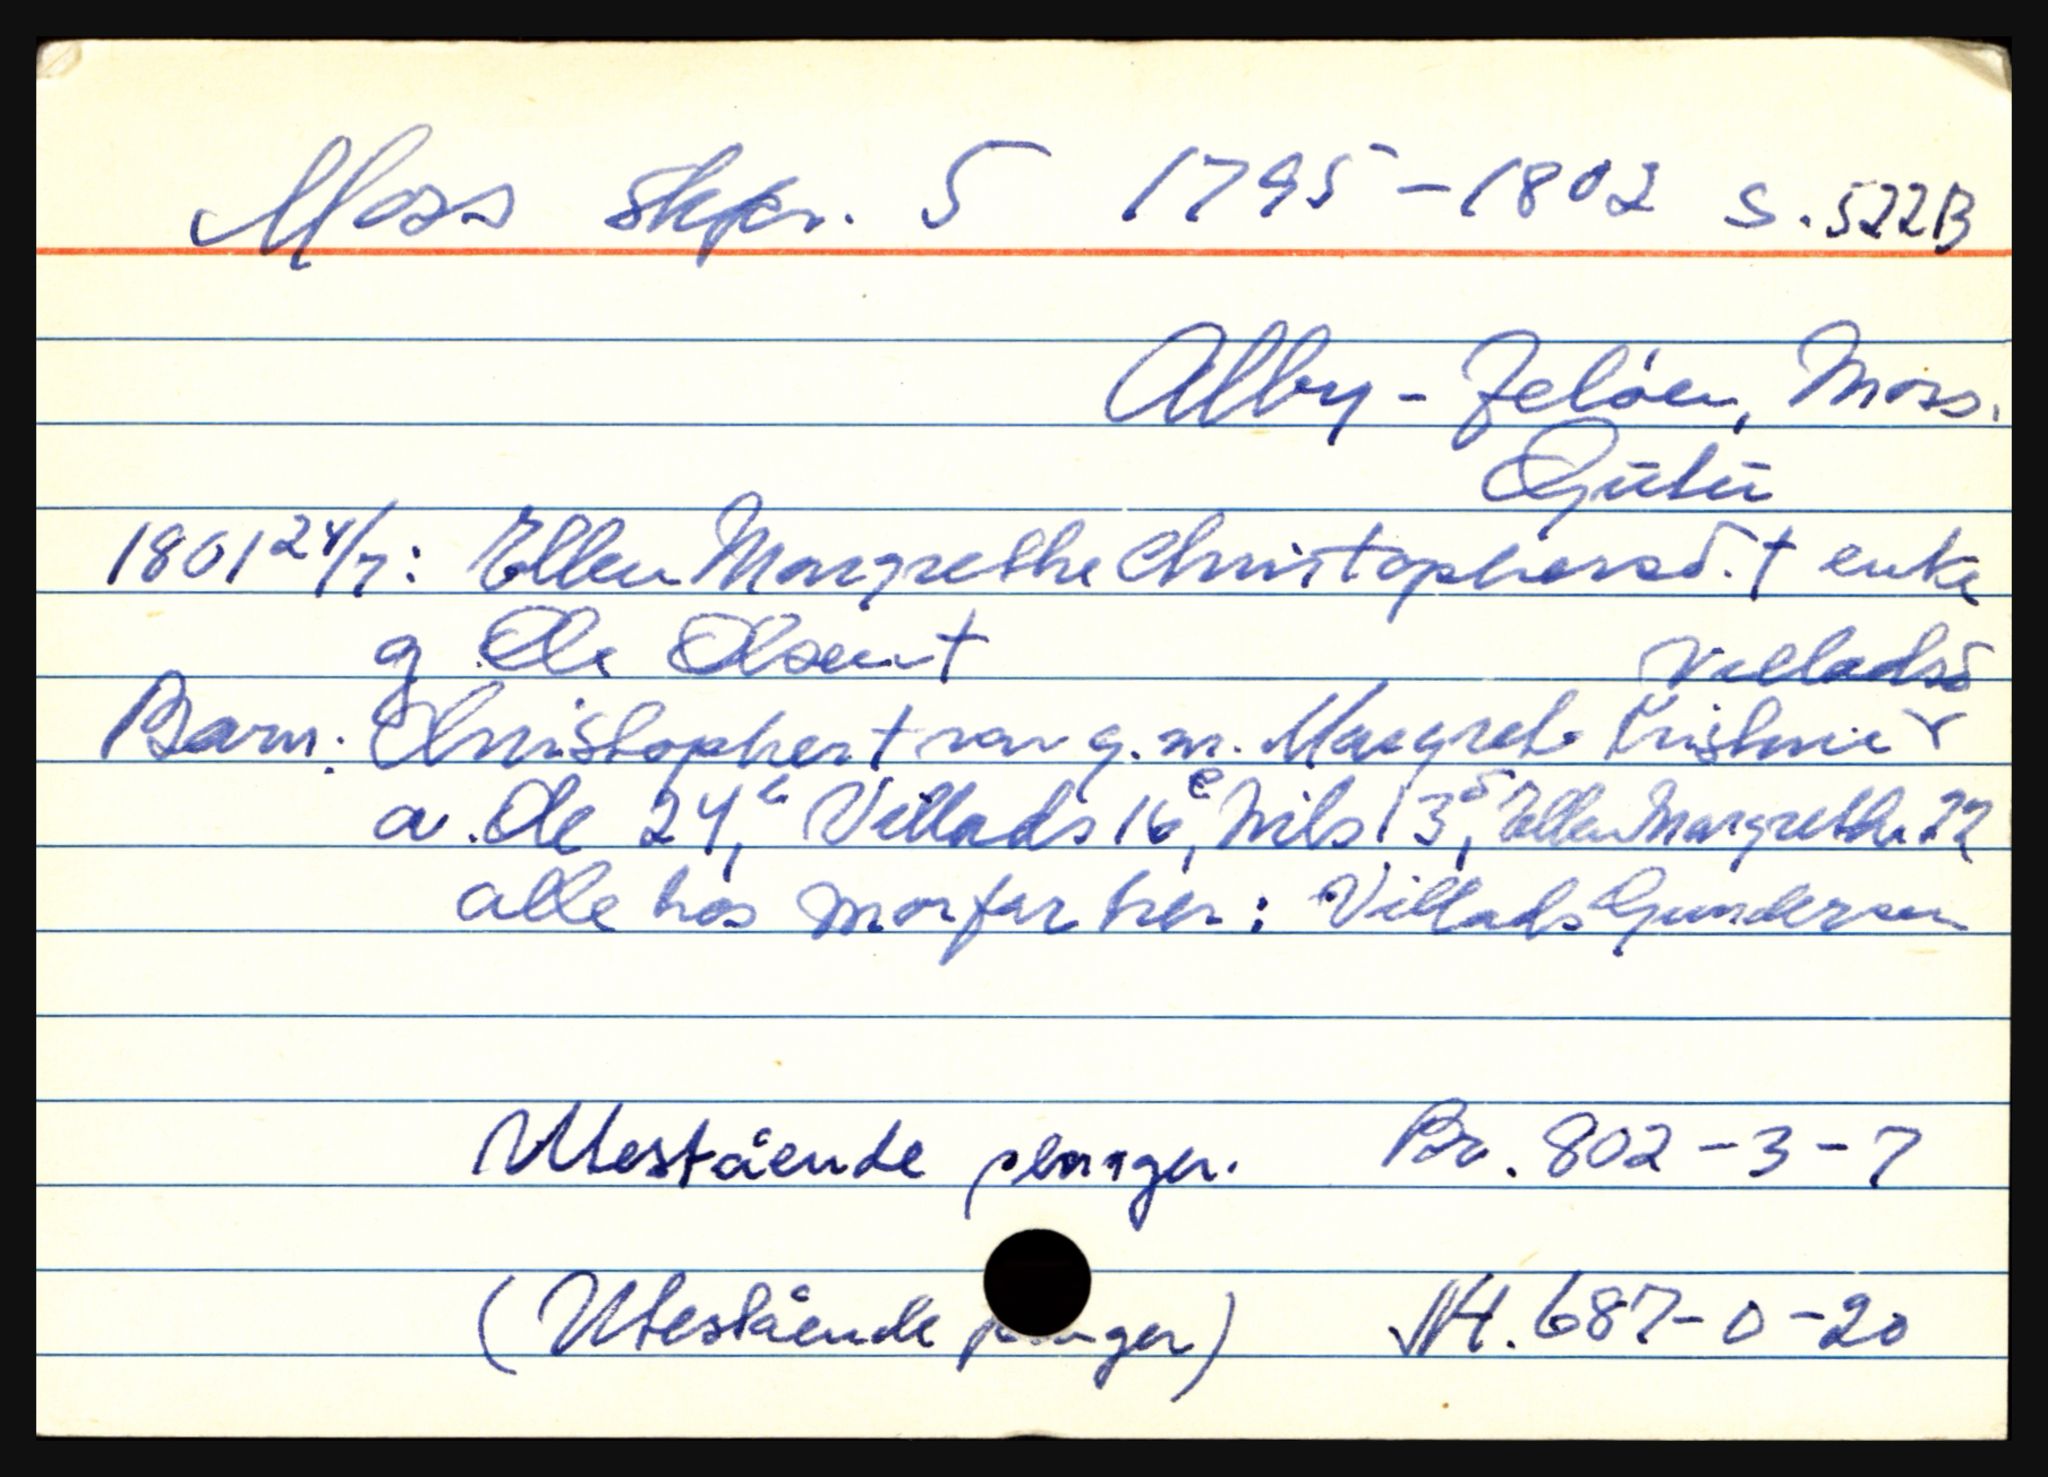 Moss skpr. 5 1795-1802 s. 522B
Alby - Jeløen, Moss.
1801 24/7: Ellen Margrethe Christophersd. † enke
g. Ole Olsen †
Villadsd
Barn: Christopher † var g.m. Margrete Kristine
a. Ole 24, Villads 16, Nils 13, Ellen Margrethe 22
alle hos morfar her: Villads Gundersen
Utestående penger. Br. 802-3-7
(Utestående penger) NH. 687-0-20